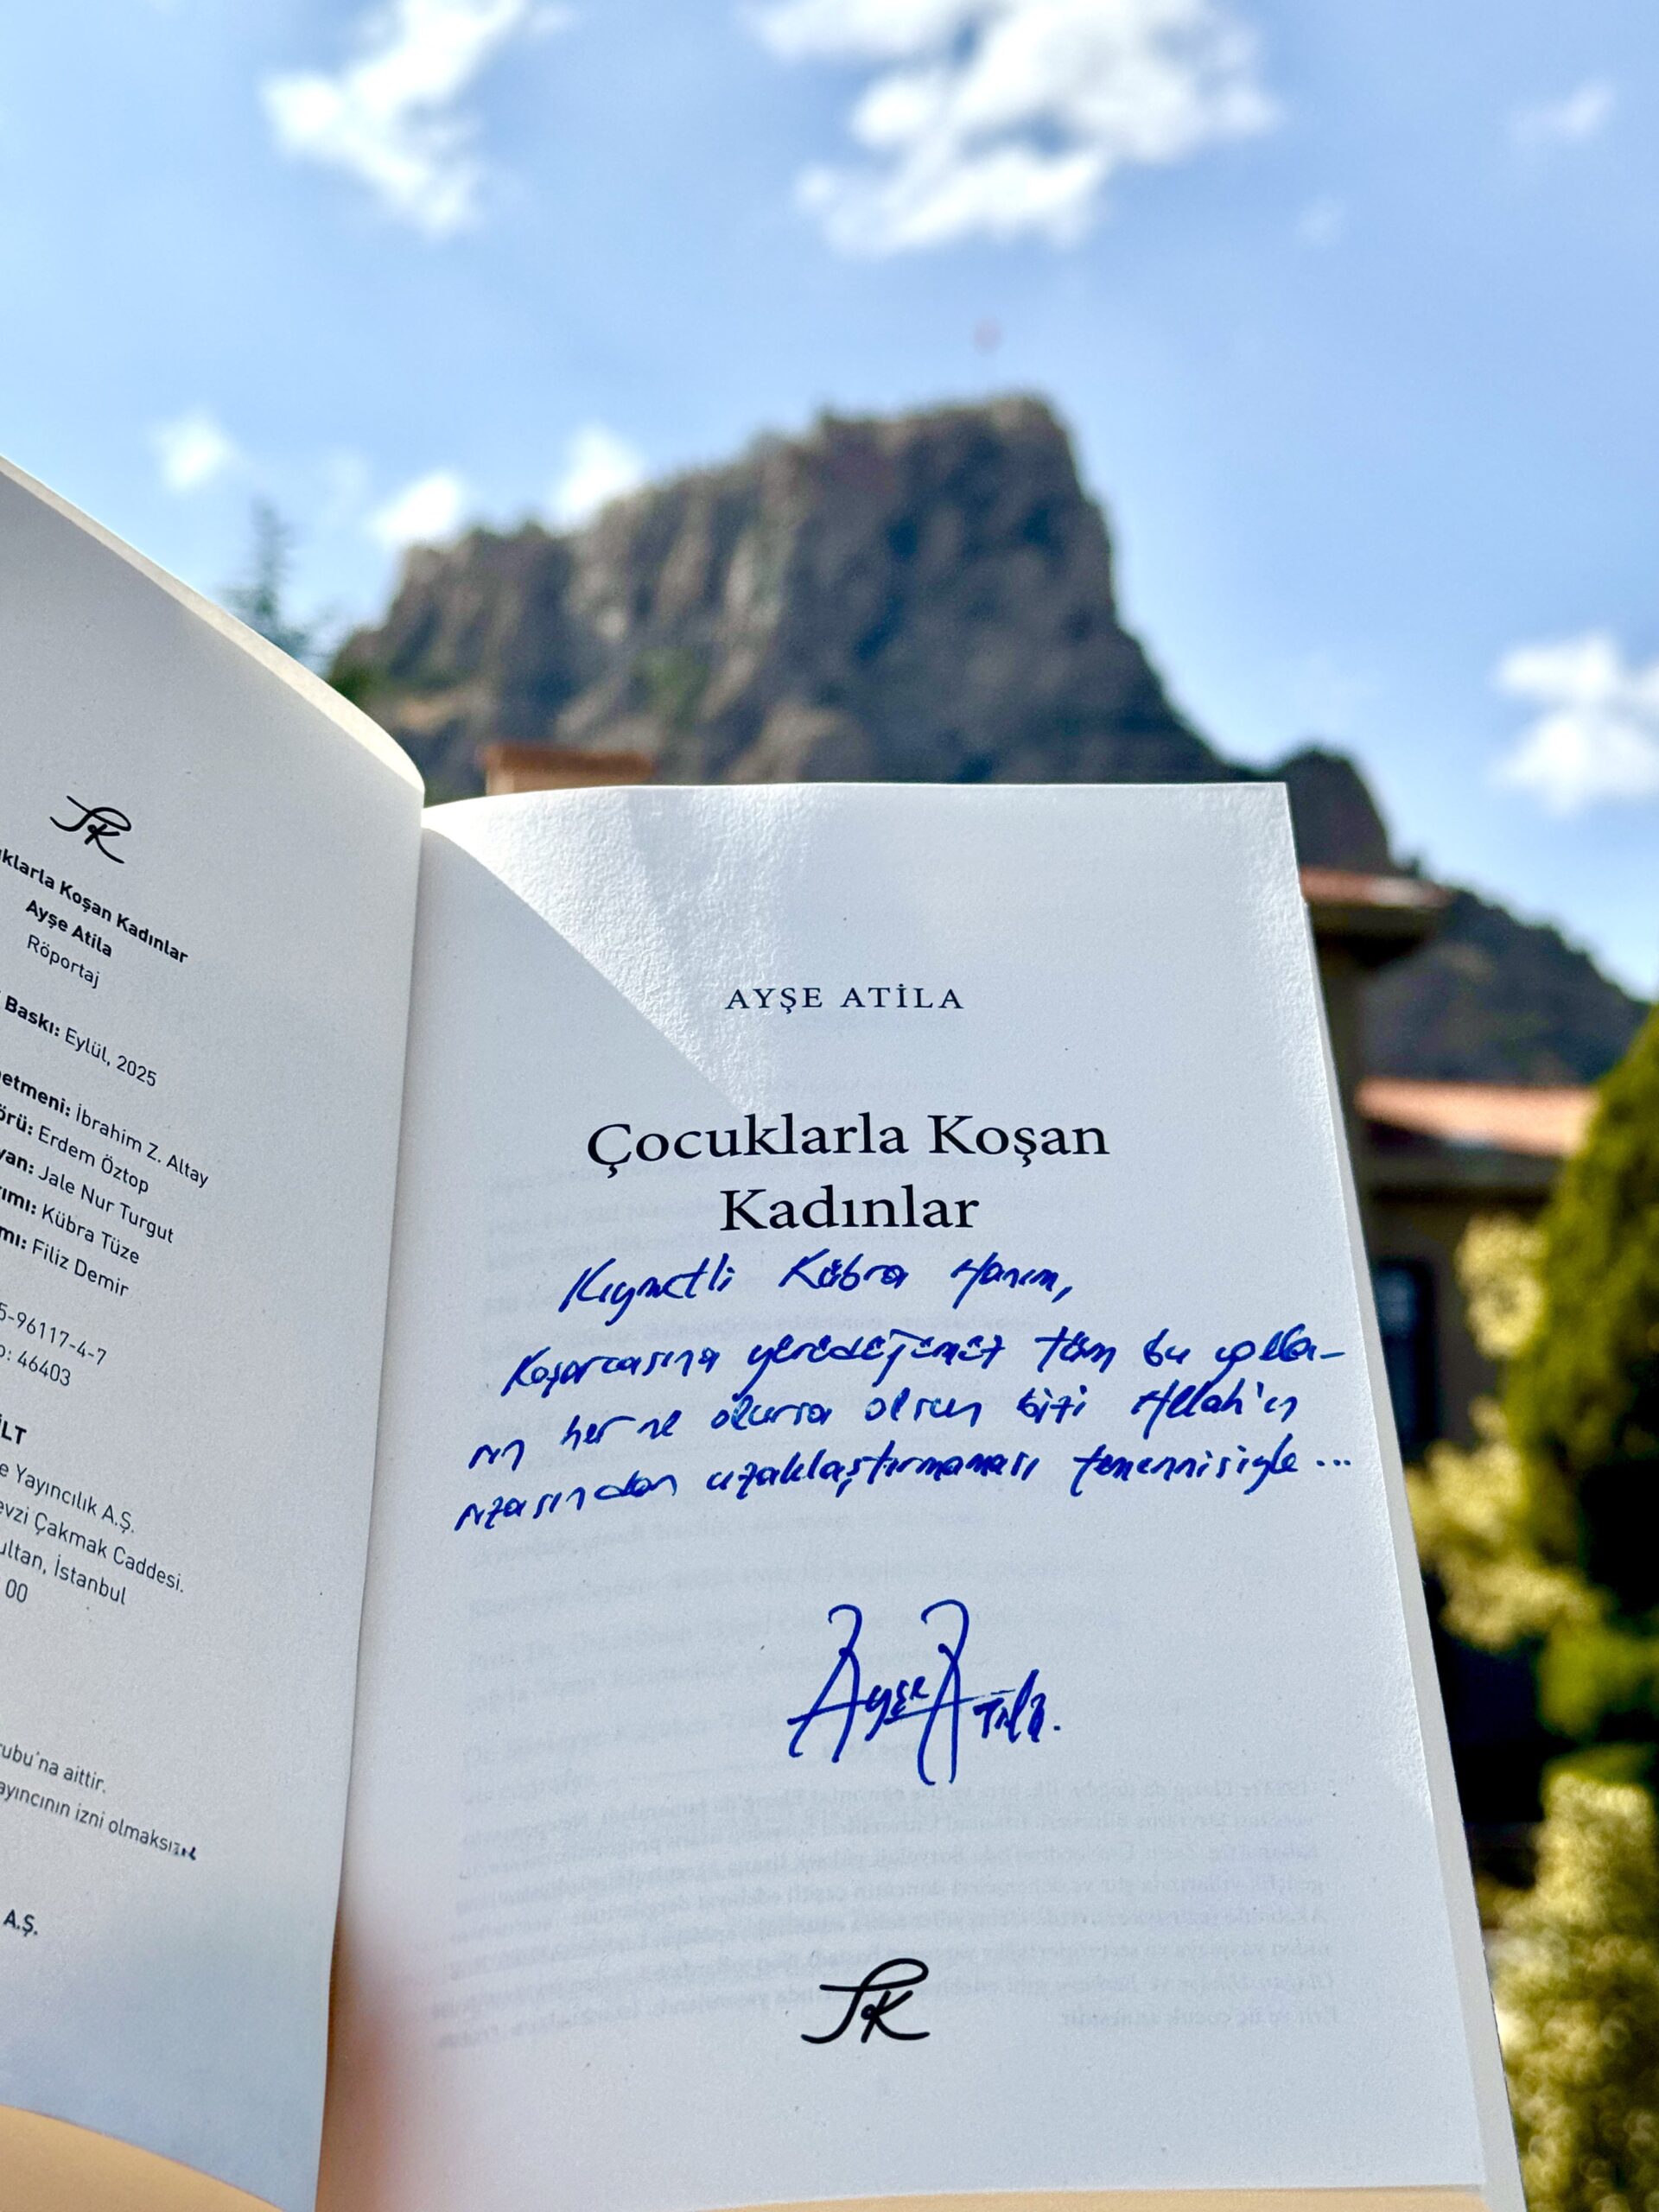 klarla Koşan Kadınlar
Ayşe Atila
Röportaj
Baskı: Eylül, 2025
etmeni: İbrahim Z. Altay
örü: Erdem Öztop
yan: Jale Nur Turgut
ımı: Kübra Tüze
mı: Filiz Demir
5-96117-4-7
o: 46403
LT
e Yayıncılık A.Ş.
evzi Çakmak Caddesi.
ultan, İstanbul
00
ubu'na aittir.
ayıncının izni olmaksızın
A.Ş.
AYŞE ATİLA
Çocuklarla Koşan
Kadınlar
Kıymetli Kübra Hanım,
Koşarcasına yürüdüğümüz tüm bu yolla-
rın her ne olursa olsun bizi Allah'ın
rızasından uzaklaştırmaması temennisiyle...
Ayşe Atila.